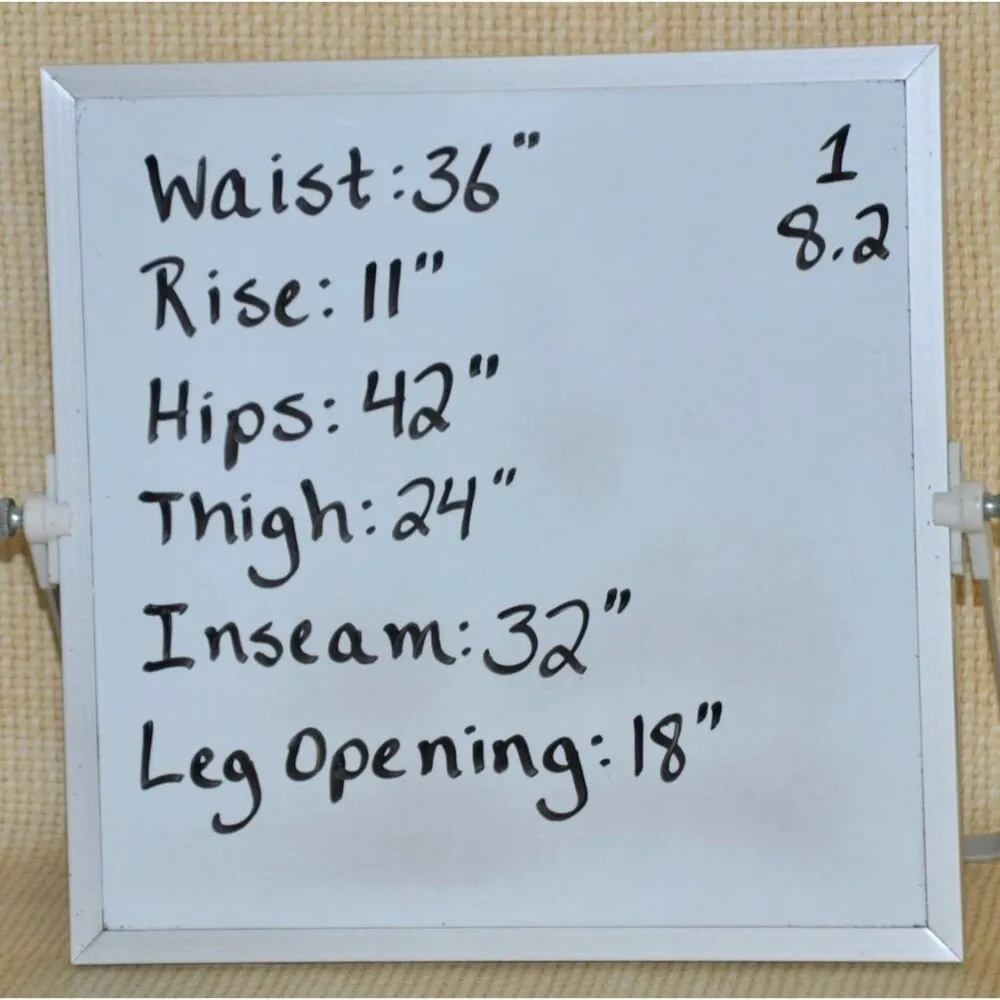 Waist: 36"
Rise: 11"
Hips: 42"
Thigh: 24"
Inseam: 32"
Leg Opening: 18"
1
8.2